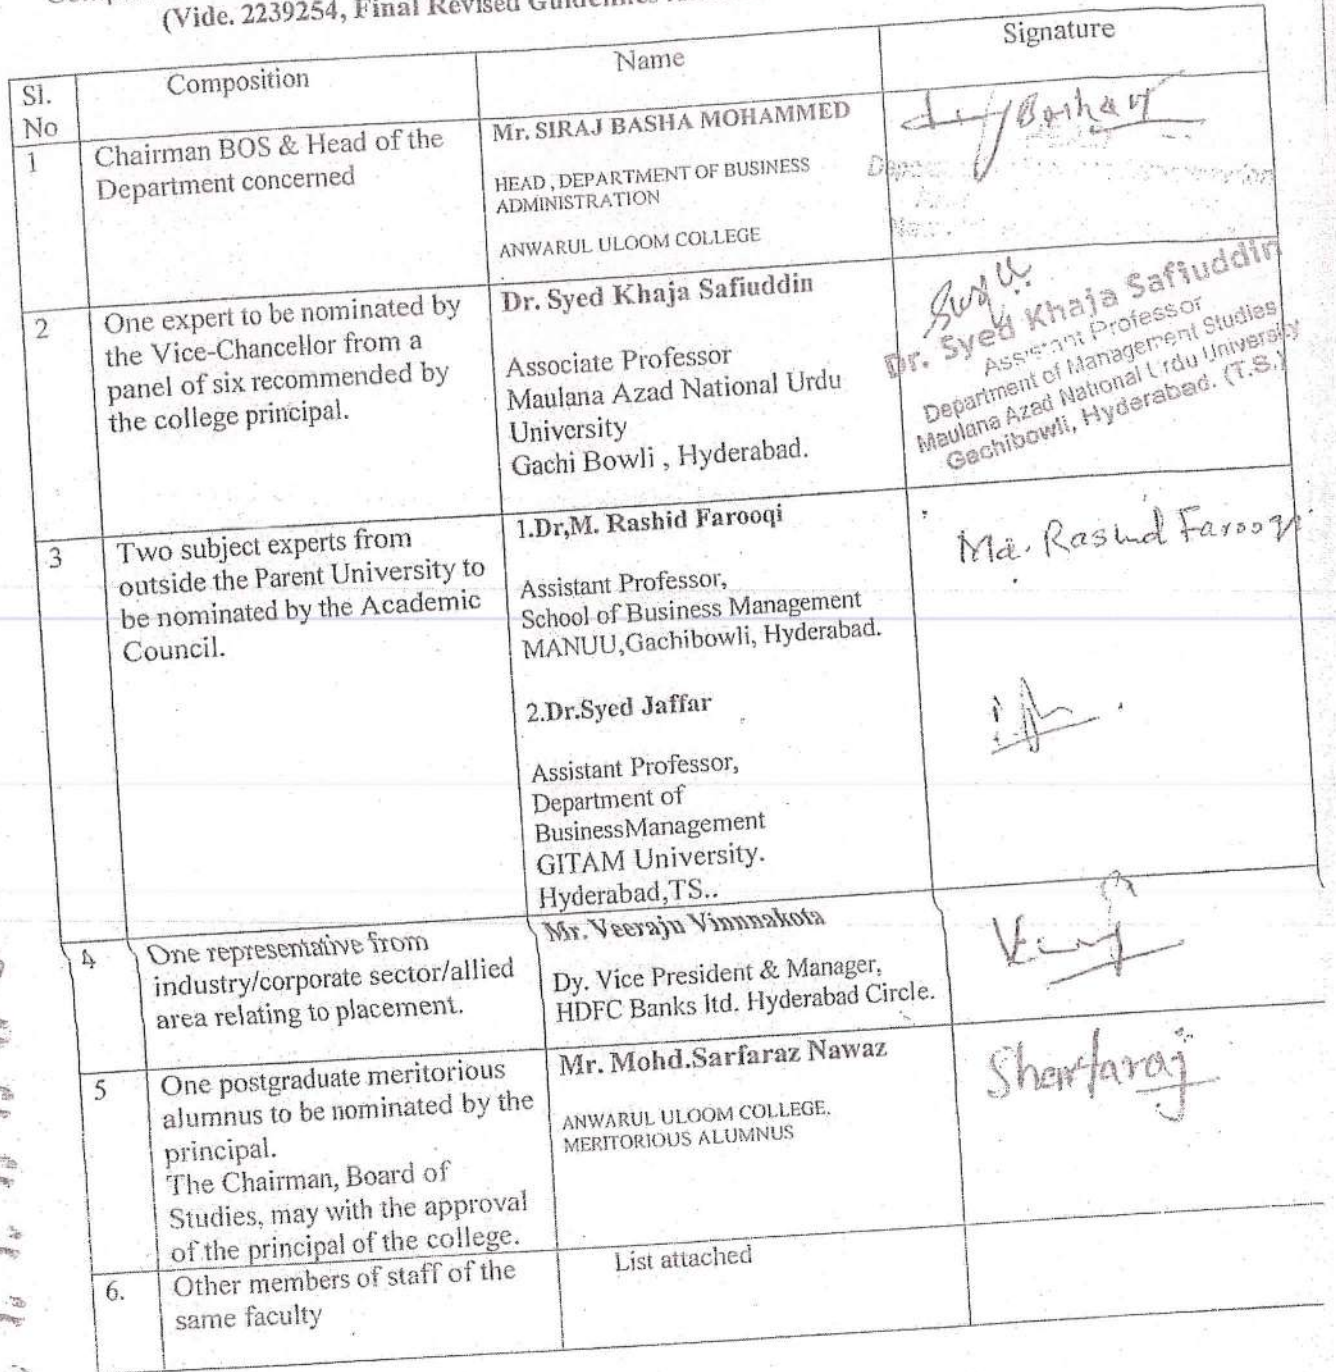 (Vide. 2239254, Final Revised Guidelines
Sl. No
Composition
Name
Signature
1
Chairman BOS & Head of the
Department concerned
Mr. SIRAJ BASHA MOHAMMED
HEAD , DEPARTMENT OF BUSINESS
ADMINISTRATION
ANWARUL ULOOM COLLEGE
2
One expert to be nominated by
the Vice-Chancellor from a
panel of six recommended by
the college principal.
Dr. Syed Khaja Safiuddin
Associate Professor
Maulana Azad National Urdu
University
Gachi Bowli , Hyderabad.
Dr. Syed Khaja Safiuddin
Assistant Professor
Department of Management Studies
Maulana Azad National Urdu University
Gachibowli, Hyderabad. (T.S.)
3
Two subject experts from
outside the Parent University to
be nominated by the Academic
Council.
1.Dr,M. Rashid Farooqi
Assistant Professor,
School of Business Management
MANUU,Gachibowli, Hyderabad.
Md. Rashid Farooqi
2.Dr.Syed Jaffar
Assistant Professor,
Department of
BusinessManagement
GITAM University.
Hyderabad,TS..
4
One representative from
industry/corporate sector/allied
area relating to placement.
Mr. Veeraju Vinnnakota
Dy. Vice President & Manager,
HDFC Banks ltd. Hyderabad Circle.
5
One postgraduate meritorious
alumnus to be nominated by the
principal.
The Chairman, Board of
Studies, may with the approval
of the principal of the college.
Mr. Mohd.Sarfaraz Nawaz
ANWARUL ULOOM COLLEGE,
MERITORIOUS ALUMNUS
6.
Other members of staff of the
same faculty
List attached